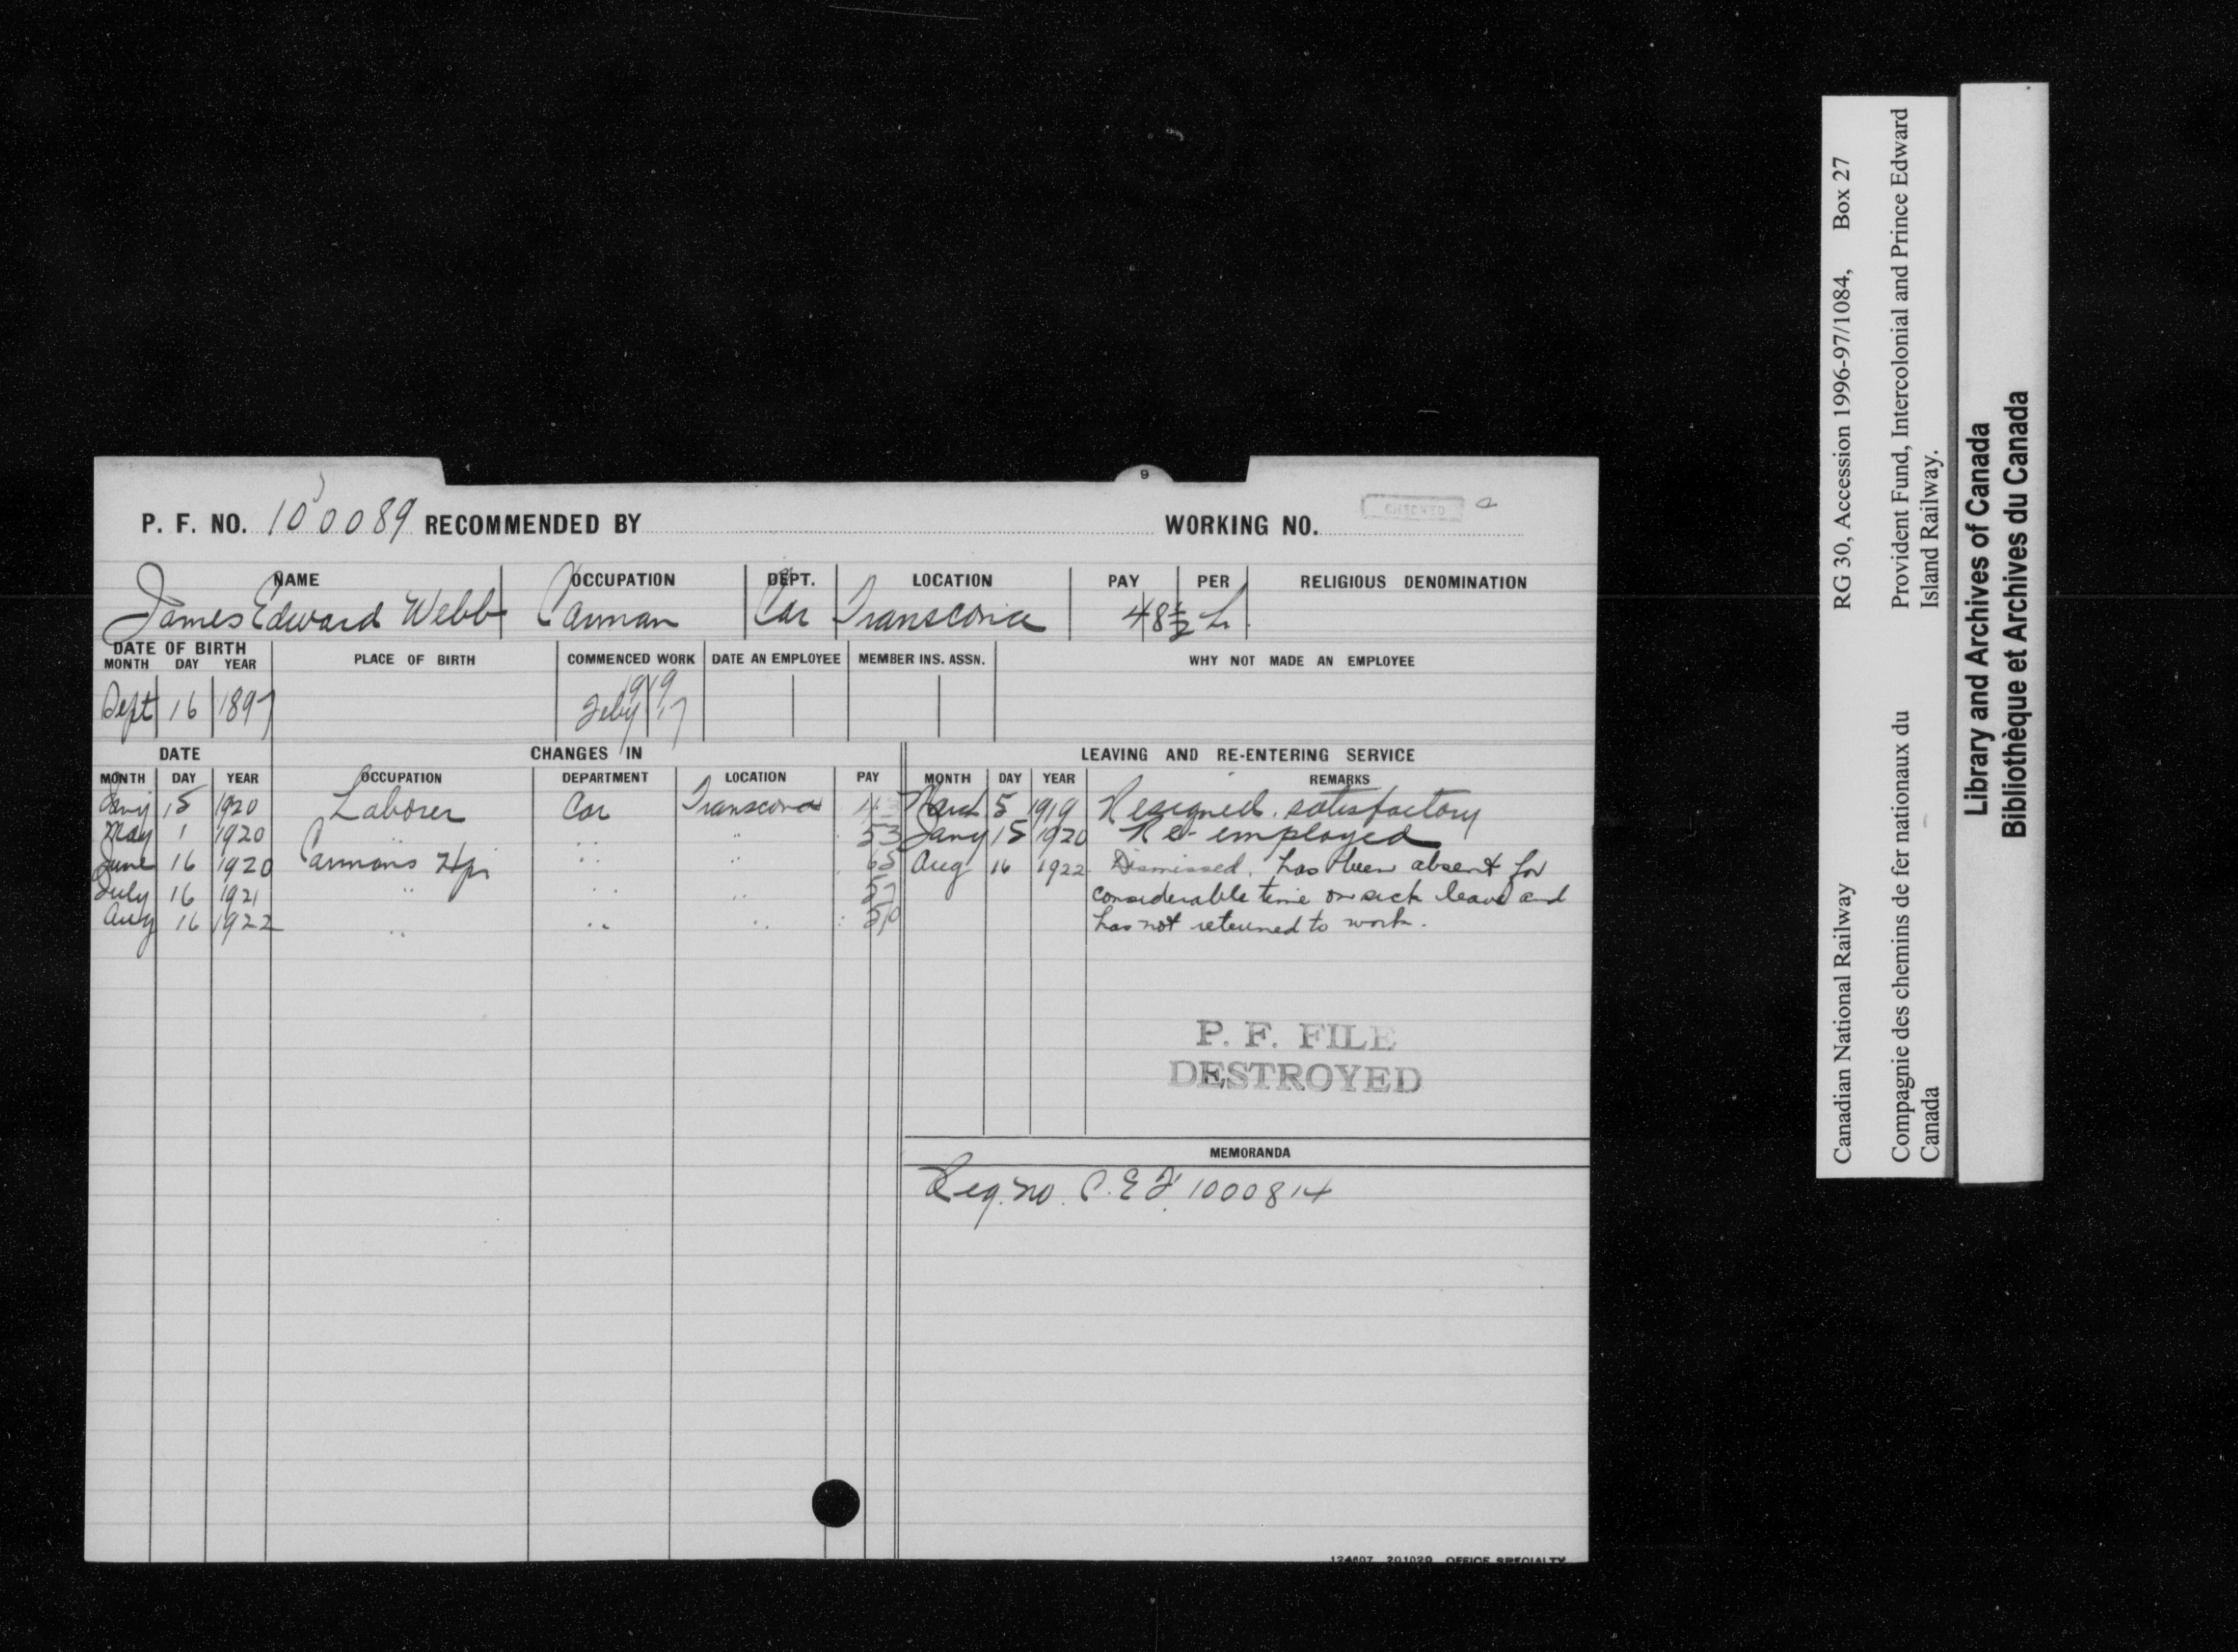 9
P. F. NO. 100089 RECOMMENDED BY WORKING NO. CHECKED
NAME OCCUPATION DEPT. LOCATION PAY PER RELIGIOUS DENOMINATION
James Edward Webb Carman Car Transcona 48½ h
DATE OF BIRTH
MONTH DAY YEAR PLACE OF BIRTH COMMENCED WORK DATE AN EMPLOYEE MEMBER INS. ASSN. WHY NOT MADE AN EMPLOYEE
1919
Sept 16 1897 Feby 17
DATE CHANGES IN LEAVING AND RE-ENTERING SERVICE
MONTH DAY YEAR OCCUPATION DEPARTMENT LOCATION PAY MONTH DAY YEAR REMARKS
Jany 15 1920 Laborer Car Transcona 43 March 5 1919 Resigned. satisfactory
May 1 1920 " " " 53 Jany 15 1920 Re-employed
June 16 1920 Carmans Hpr " " 65 Aug 16 1922 Dismissed. has been absent for
July 16 1921 " " " 57 considerable time on sick leave and
Aug 16 1922 " " " 50 has not returned to work.
P. F. FILE
DESTROYED
MEMORANDA
Reg. no. C.E.F. 1000814
124607 201020 OFFICE SPECIALTY
Canadian National Railway RG 30, Accession 1996-97/1084, Box 27
Compagnie des chemins de fer nationaux du
Canada
Provident Fund, Intercolonial and Prince Edward
Island Railway.
Library and Archives of Canada
Bibliothèque et Archives du Canada